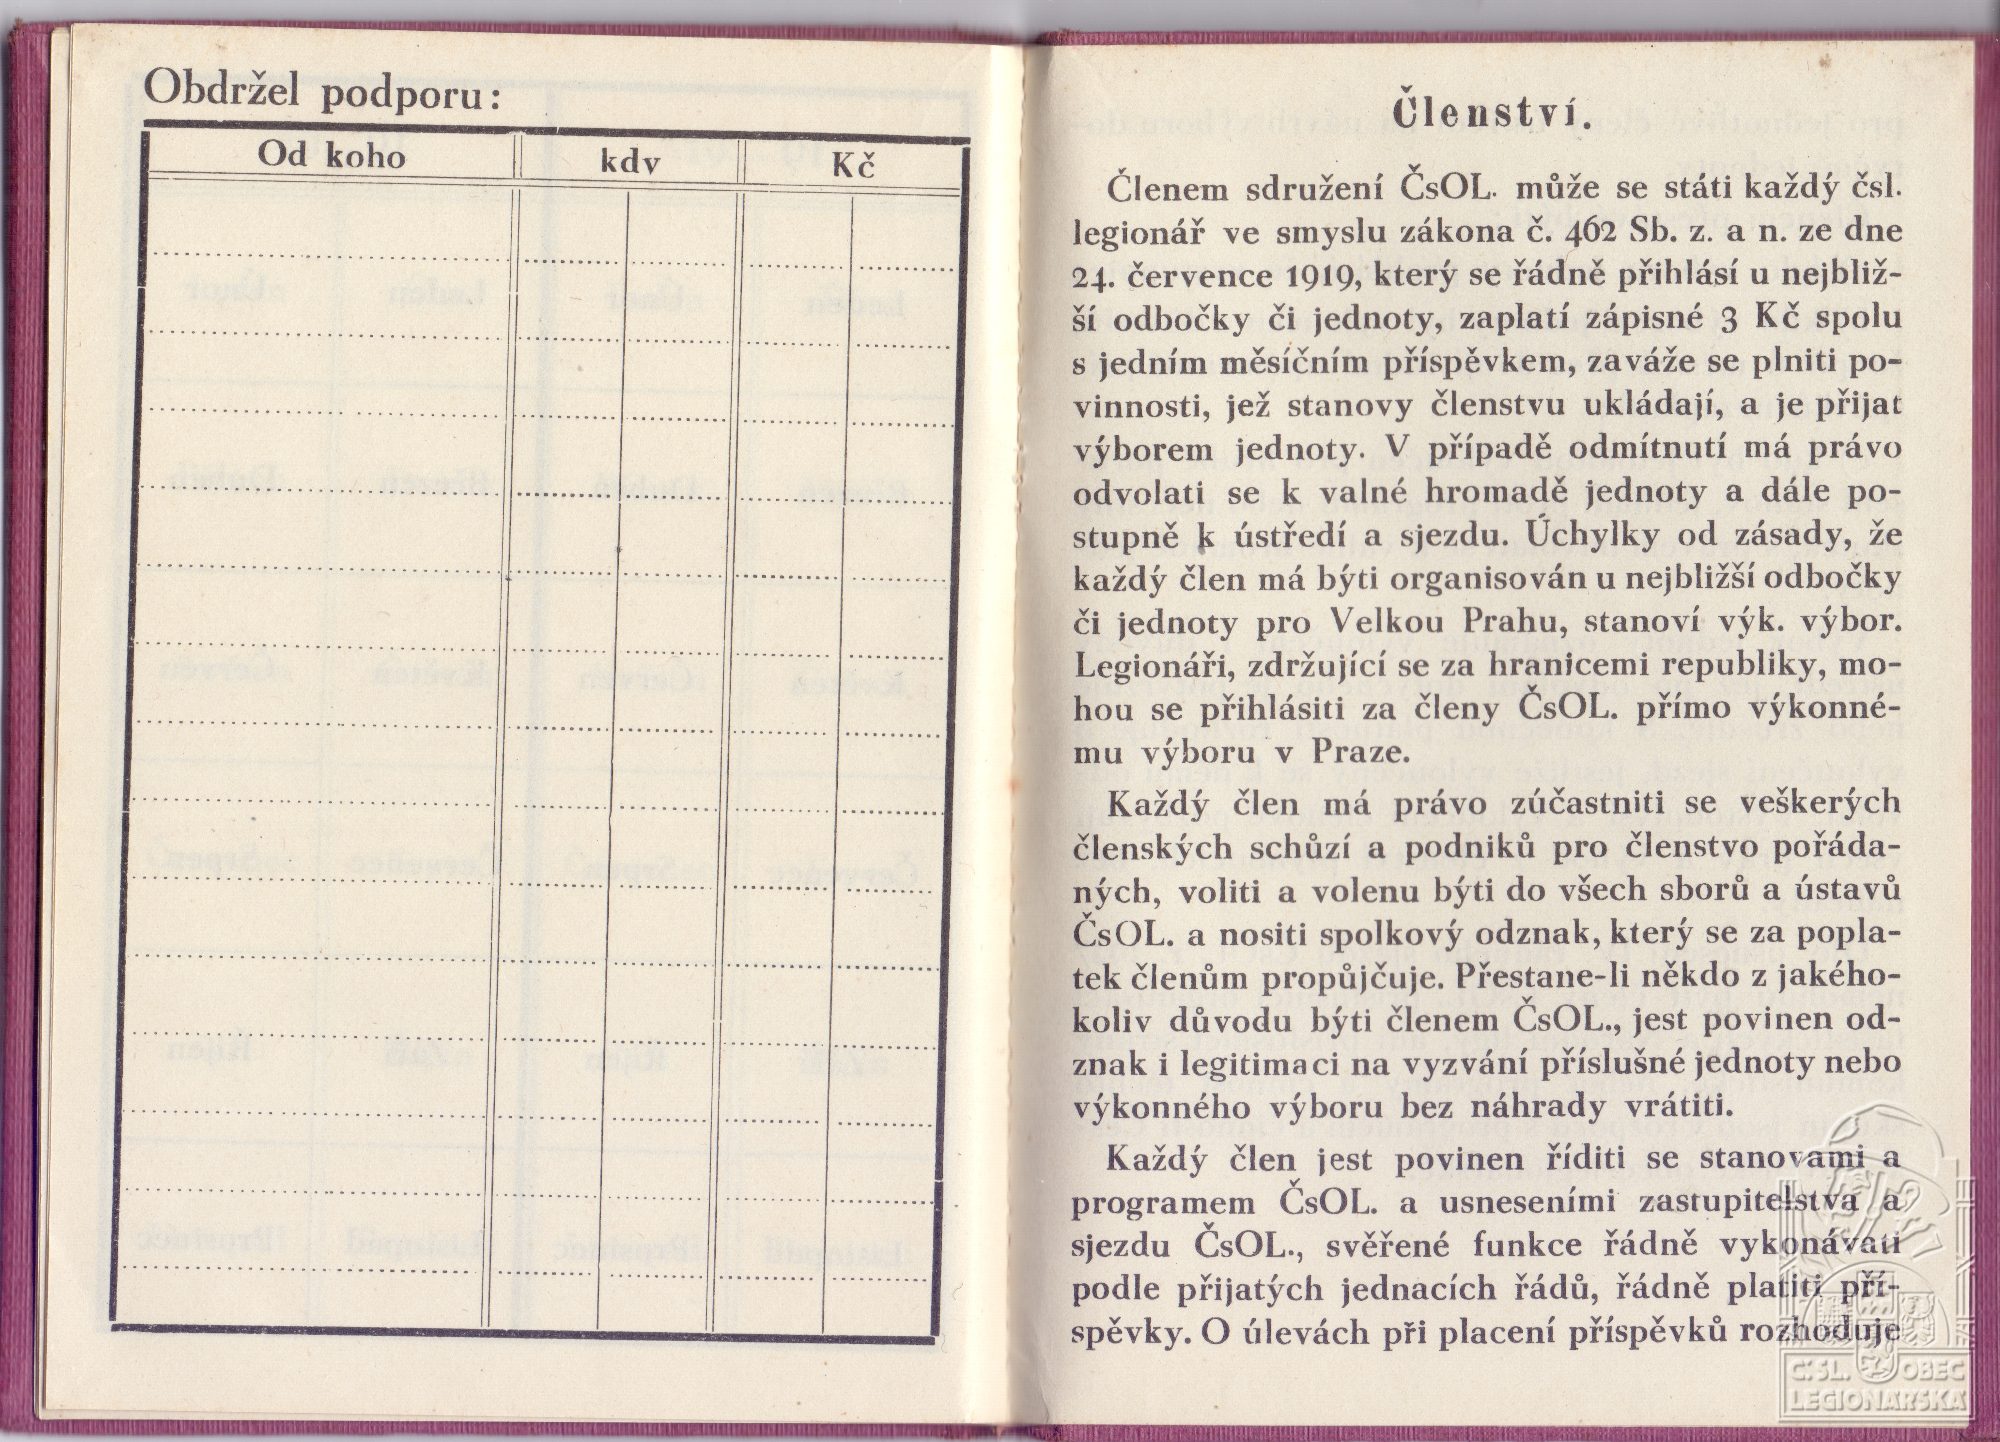 Obdržel podporu:
Od koho kdv Kč
Členství.
Členem sdružení ČsOL. může se státi každý čsl.
legionář ve smyslu zákona č. 462 Sb. z. a n. ze dne
24. července 1919, který se řádně přihlásí u nejbliž-
ší odbočky či jednoty, zaplatí zápisné 3 Kč spolu
s jedním měsíčním příspěvkem, zaváže se plniti po-
vinnosti, jež stanovy členstvu ukládají, a je přijat
výborem jednoty. V případě odmítnutí má právo
odvolati se k valné hromadě jednoty a dále po-
stupně k ústředí a sjezdu. Úchylky od zásady, že
každý člen má býti organisován u nejbližší odbočky
či jednoty pro Velkou Prahu, stanoví výk. výbor.
Legionáři, zdržující se za hranicemi republiky, mo-
hou se přihlásiti za členy ČsOL. přímo výkonné-
mu výboru v Praze.
Každý člen má právo zúčastniti se veškerých
členských schůzí a podniků pro členstvo pořáda-
ných, voliti a volenu býti do všech sborů a ústavů
ČsOL. a nositi spolkový odznak, který se za popla-
tek členům propůjčuje. Přestane-li někdo z jakého-
koliv důvodu býti členem ČsOL., jest povinen od-
znak i legitimaci na vyzvání příslušné jednoty nebo
výkonného výboru bez náhrady vrátiti.
Každý člen jest povinen říditi se stanovami a
programem ČsOL. a usneseními zastupitelstva a
sjezdu ČsOL., svěřené funkce řádně vykonávati
podle přijatých jednacích řádů, řádně platiti pří-
spěvky. O úlevách při placení příspěvků rozhoduje
Č. SL. OBEC
LEGIONÁŘSKÁ